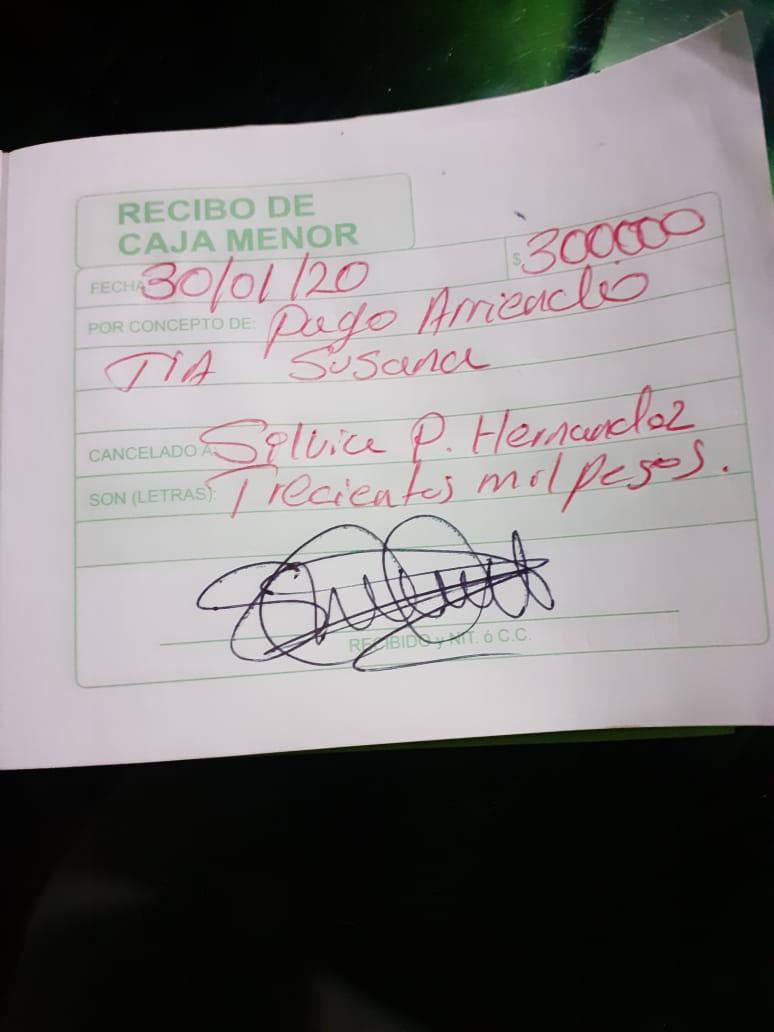 RECIBO DE
CAJA MENOR
FECHA 30/01/20 $ 300000
POR CONCEPTO DE: Pago Arriendo
TIA Susana
CANCELADO A Silvia P. Hernandez
SON (LETRAS): Trecientos mil pesos.
RECIBIDO y NIT. ó C.C.